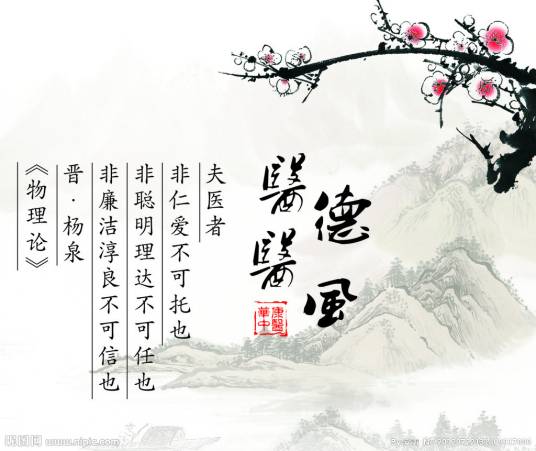 醫德
醫風
夫医者
非仁爱不可托也
非聪明理达不可任也
非廉洁淳良不可信也
晋·杨泉
《物理论》
昵图网 www.nipic.com